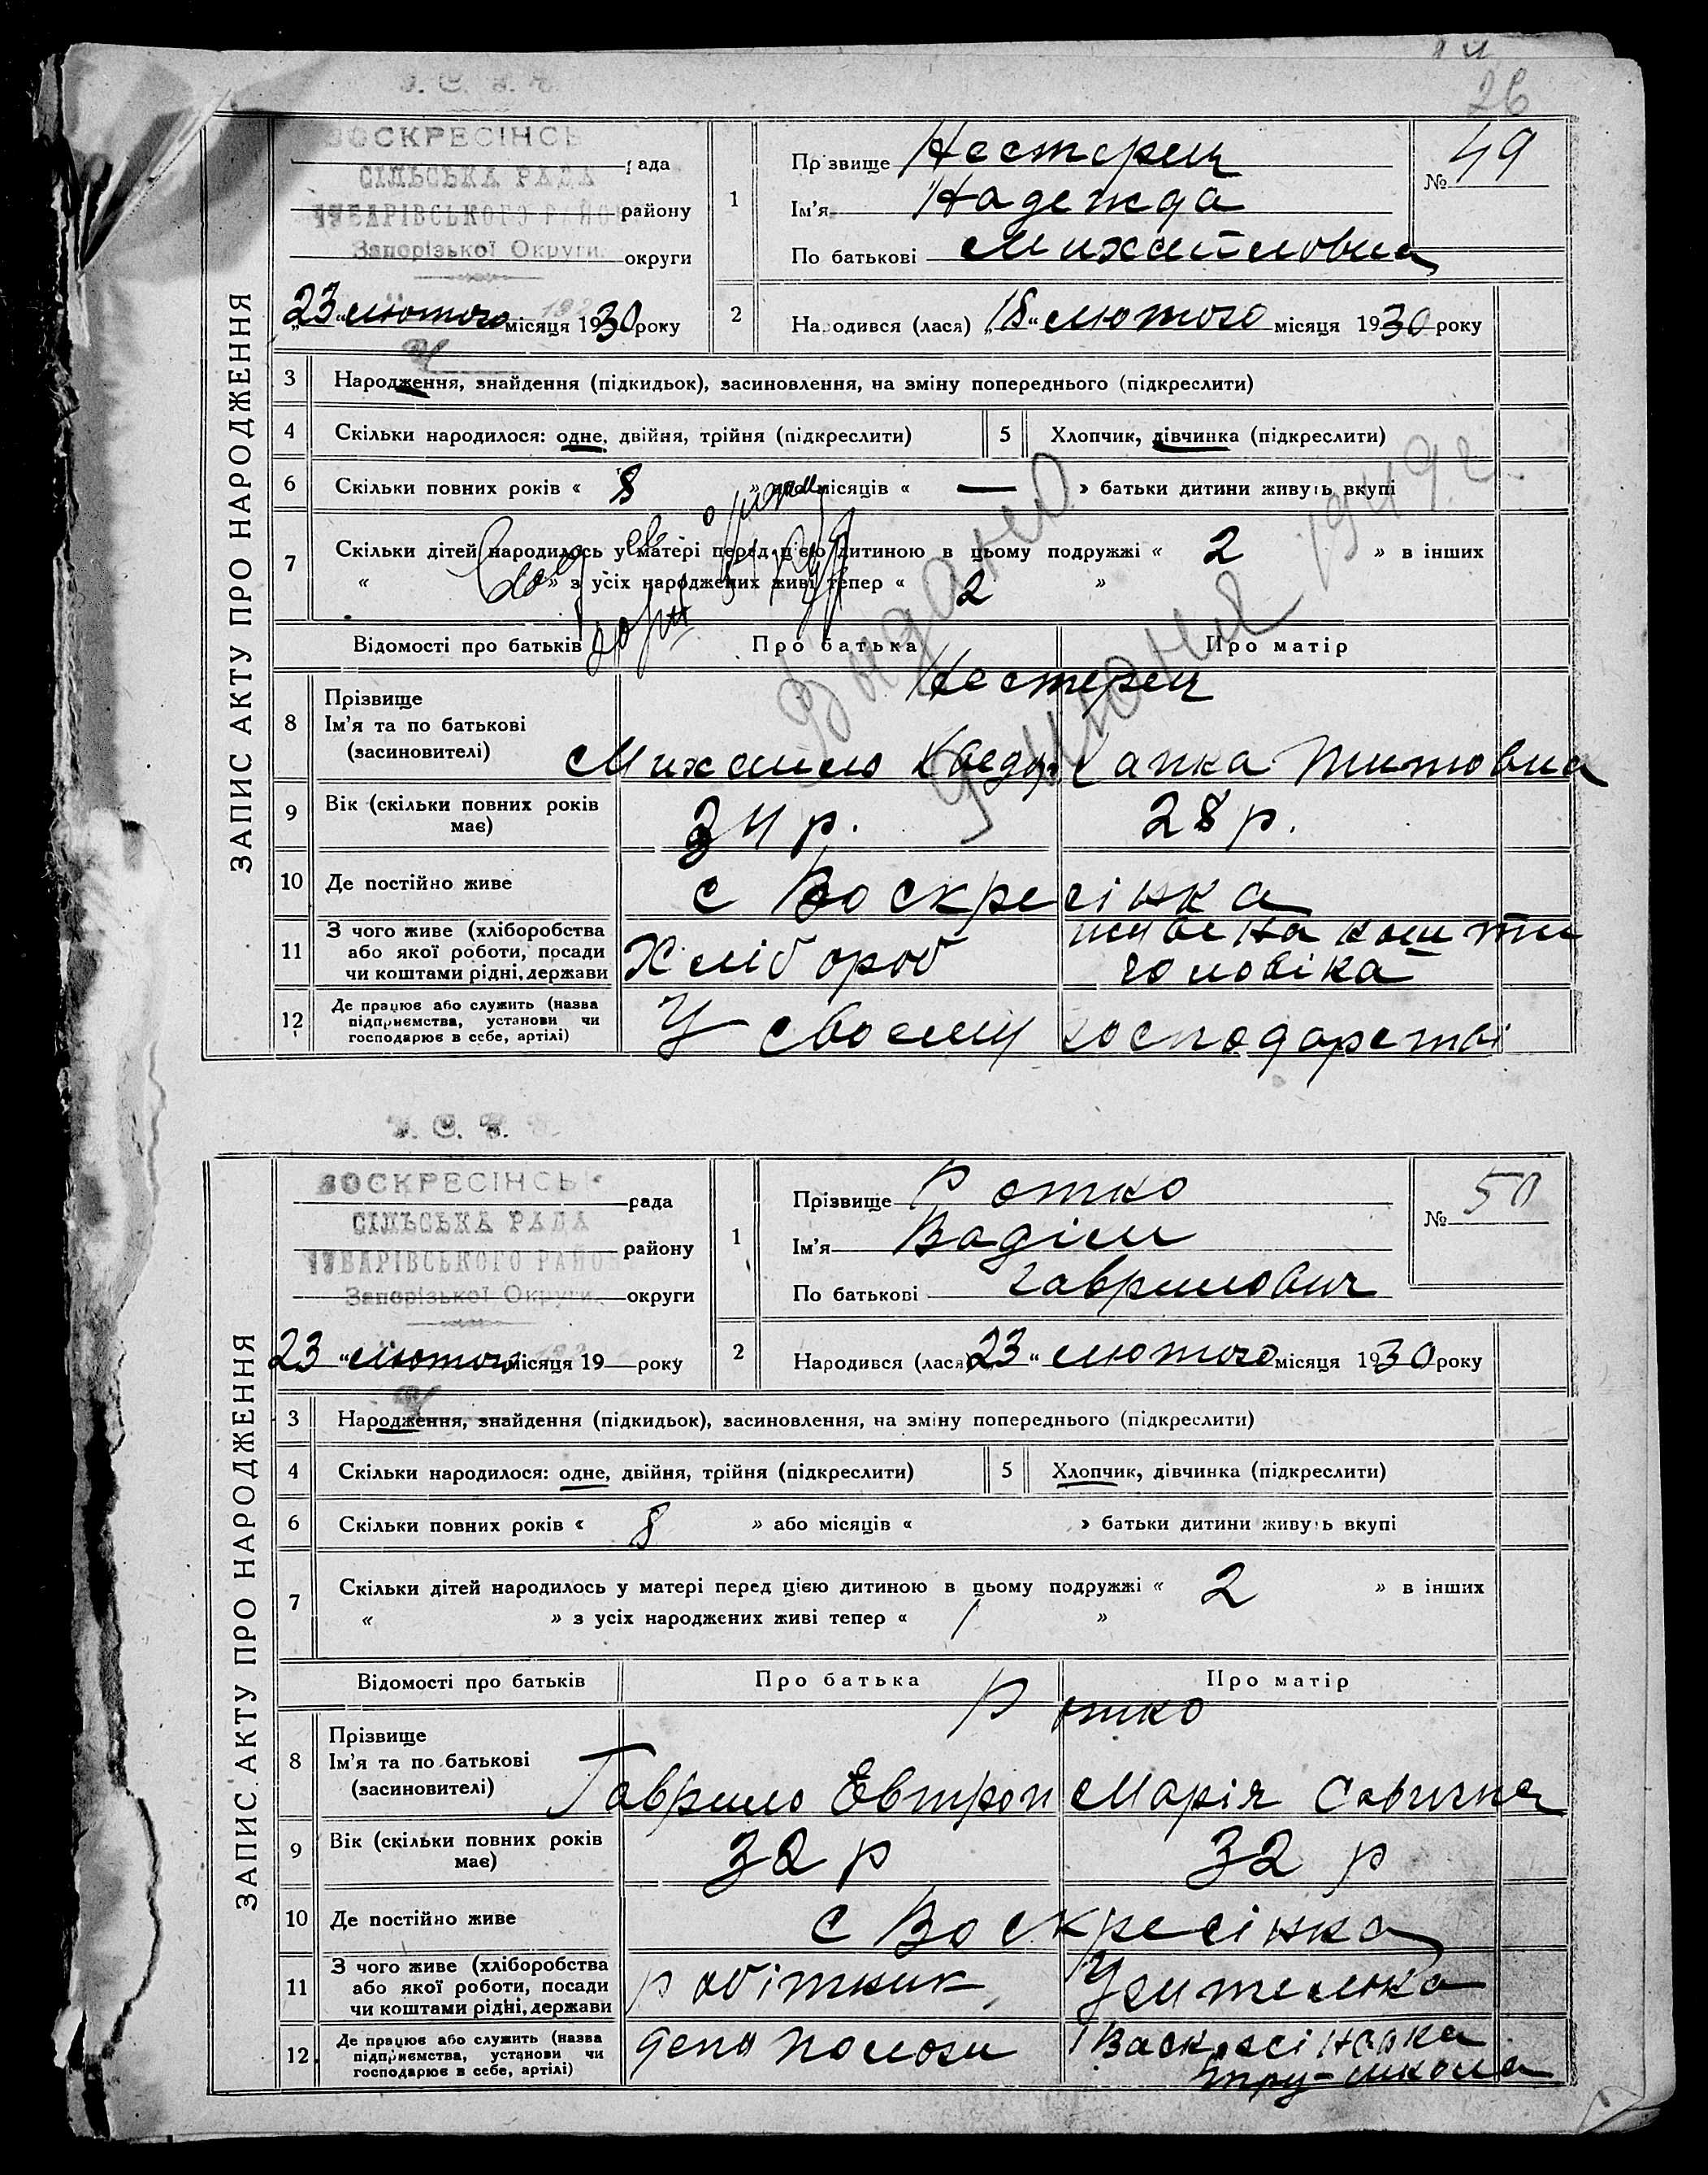 26
ВОСКРЕСІНСЬК
рада
СІЛЬСЬКА РАДА
ЧУБАРІВСЬКОГО РАЙОН
району
Запорізької Округи
округи
„23“ лютого місяця 1930 року
ЗАПИС АКТУ ПРО НАРОДЖЕННЯ
1
Прізвище Нестерец
Ім'я Надежда
По батькові Михайловна
№ 49
2
Народився (лася) „18“ лютого місяця 1930 року
3 Народження, знайдення (підкидьок), засиновлення, на зміну попереднього (підкреслити)
4 Скільки народилося: одне, двійня, трійня (підкреслити)
5 Хлопчик, дівчинка (підкреслити)
6 Скільки повних років « 8 » або місяців « — » батьки дитини живуть вкупі
7 Скільки дітей народилось у матері перед цією дитиною в цьому подружжі « 2 » в інших
« » з усіх народжених живі тепер « 2 »
Видано
июня 1949 г.
Відомості про батьків Про батька Про матір
8 Прізвище
Ім'я та по батькові
(засиновителі)
Нестерец
Михайло Хведор Хапка Титовна
9 Вік (скільки повних років має) 34 р. 28 р.
10 Де постійно живе с Воскресінка
11 З чого живе (хліборобства
або якої роботи, посади
чи коштами рідні, держави
Хлібороб
живе на кошти
чоловіка
12 Де працює або служить (назва
підприємства, установи чи
господарює в себе, артілі)
У своему господарстві
ВОСКРЕСІНСЬК
рада
СІЛЬСЬКА РАДА
ЧУБАРІВСЬКОГО РАЙОН
району
Запорізької Округи
округи
23 “ лютого місяця 19 року
ЗАПИС АКТУ ПРО НАРОДЖЕННЯ
1
Прізвище Ротко
Ім'я Вадім
По батькові Гаврилович
№ 50
2
Народився (лася) „23“ лютого місяця 1930 року
3 Народження, знайдення (підкидьок), засиновлення, на зміну попереднього (підкреслити)
4 Скільки народилося: одне, двійня, трійня (підкреслити)
5 Хлопчик, дівчинка (підкреслити)
6 Скільки повних років « 8 » або місяців « » батьки дитини живуть вкупі
7 Скільки дітей народилось у матері перед цією дитиною в цьому подружжі « 2 » в інших
« » з усіх народжених живі тепер « 1 »
Відомості про батьків Про батька Про матір
8 Прізвище
Ім'я та по батькові
(засиновителі)
Ротко
Гаврило Евтроп Марія Савична
9 Вік (скільки повних років має) 32 р 32 р
10 Де постійно живе с Воскресінка
11 З чого живе (хліборобства
або якої роботи, посади
чи коштами рідні, держави
робітник, Учителька
12 Де працює або служить (назва
підприємства, установи чи
господарює в себе, артілі)
депо Пологи
школа